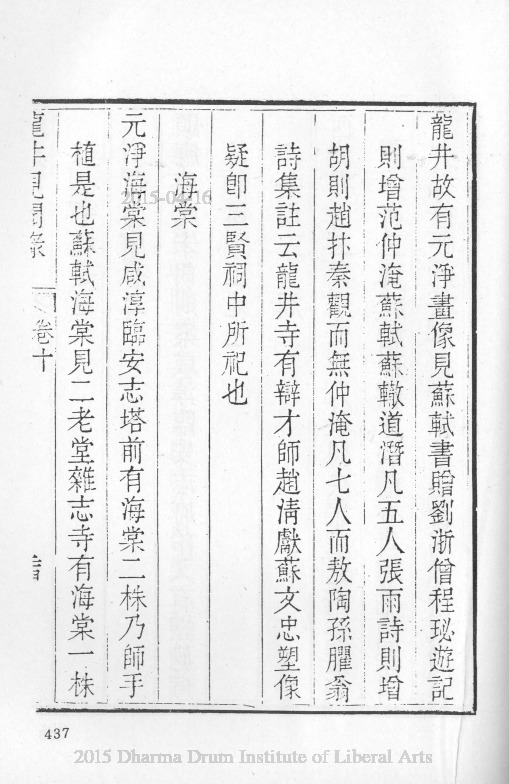 龍井故有元淨畫像見蘇軾書贈劉浙僧程珌遊記
則增范仲淹蘇軾蘇轍道潛凡五人張雨詩則增
胡則趙抃秦觀而無仲淹凡七人而敖陶孫臞翁
詩集註云龍井寺有辯才師趙清獻蘇文忠塑像
疑卽三賢祠中所祀也
海棠
元淨海棠見咸淳臨安志塔前有海棠二株乃師手
植是也蘇軾海棠見二老堂雜志寺有海棠一株
龍井見聞錄
卷十
437
2015-04-16
2015 Dharma Drum Institute of Liberal Arts